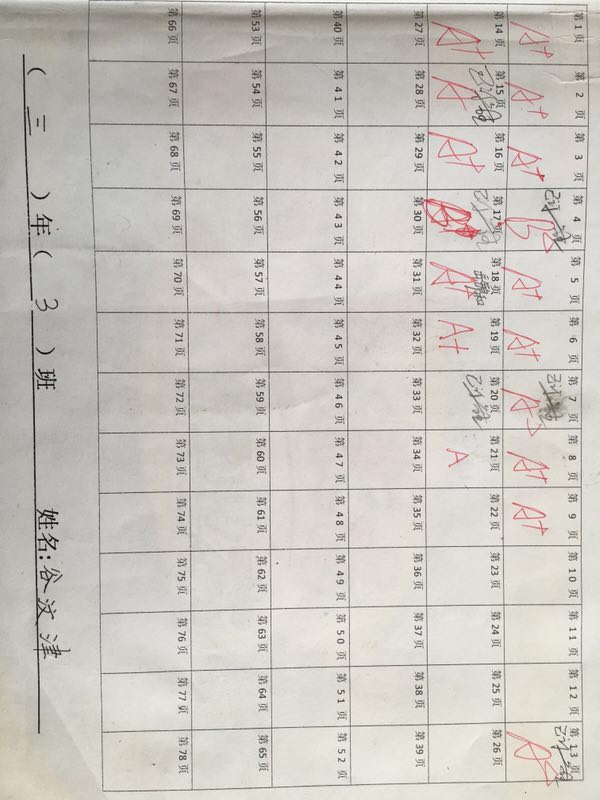 第1页 第2页 第3页 第4页 第5页 第6页 第7页 第8页 第9页 第10页 第11页 第12页 第13页
A+ A+ A+ B A+ A+ A A+ A+ A
第14页 第15页 第16页 第17页 第18页 第19页 第20页 第21页 第22页 第23页 第24页 第25页 第26页
A+ A A+ A+ A+ A
第27页 第28页 第29页 第30页 第31页 第32页 第33页 第34页 第35页 第36页 第37页 第38页 第39页
第40页 第41页 第42页 第43页 第44页 第45页 第46页 第47页 第48页 第49页 第50页 第51页 第52页
第53页 第54页 第55页 第56页 第57页 第58页 第59页 第60页 第61页 第62页 第63页 第64页 第65页
第66页 第67页 第68页 第69页 第70页 第71页 第72页 第73页 第74页 第75页 第76页 第77页 第78页
(三)年(3)班 姓名:谷汶津